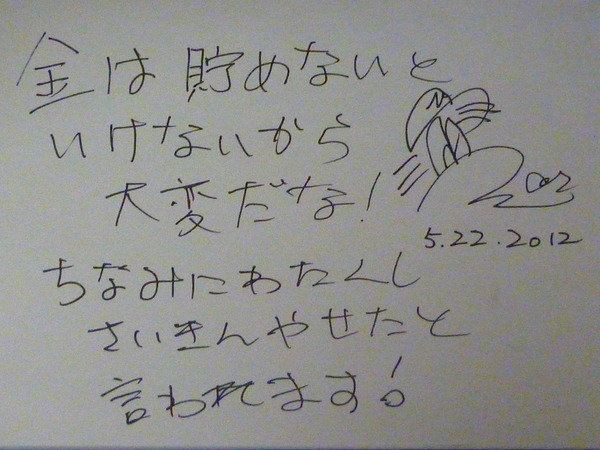 金は貯めないと
いけないから
大変だな!
5.22.2012
ちなみにわたくし
さいきんやせたと
言われてます!